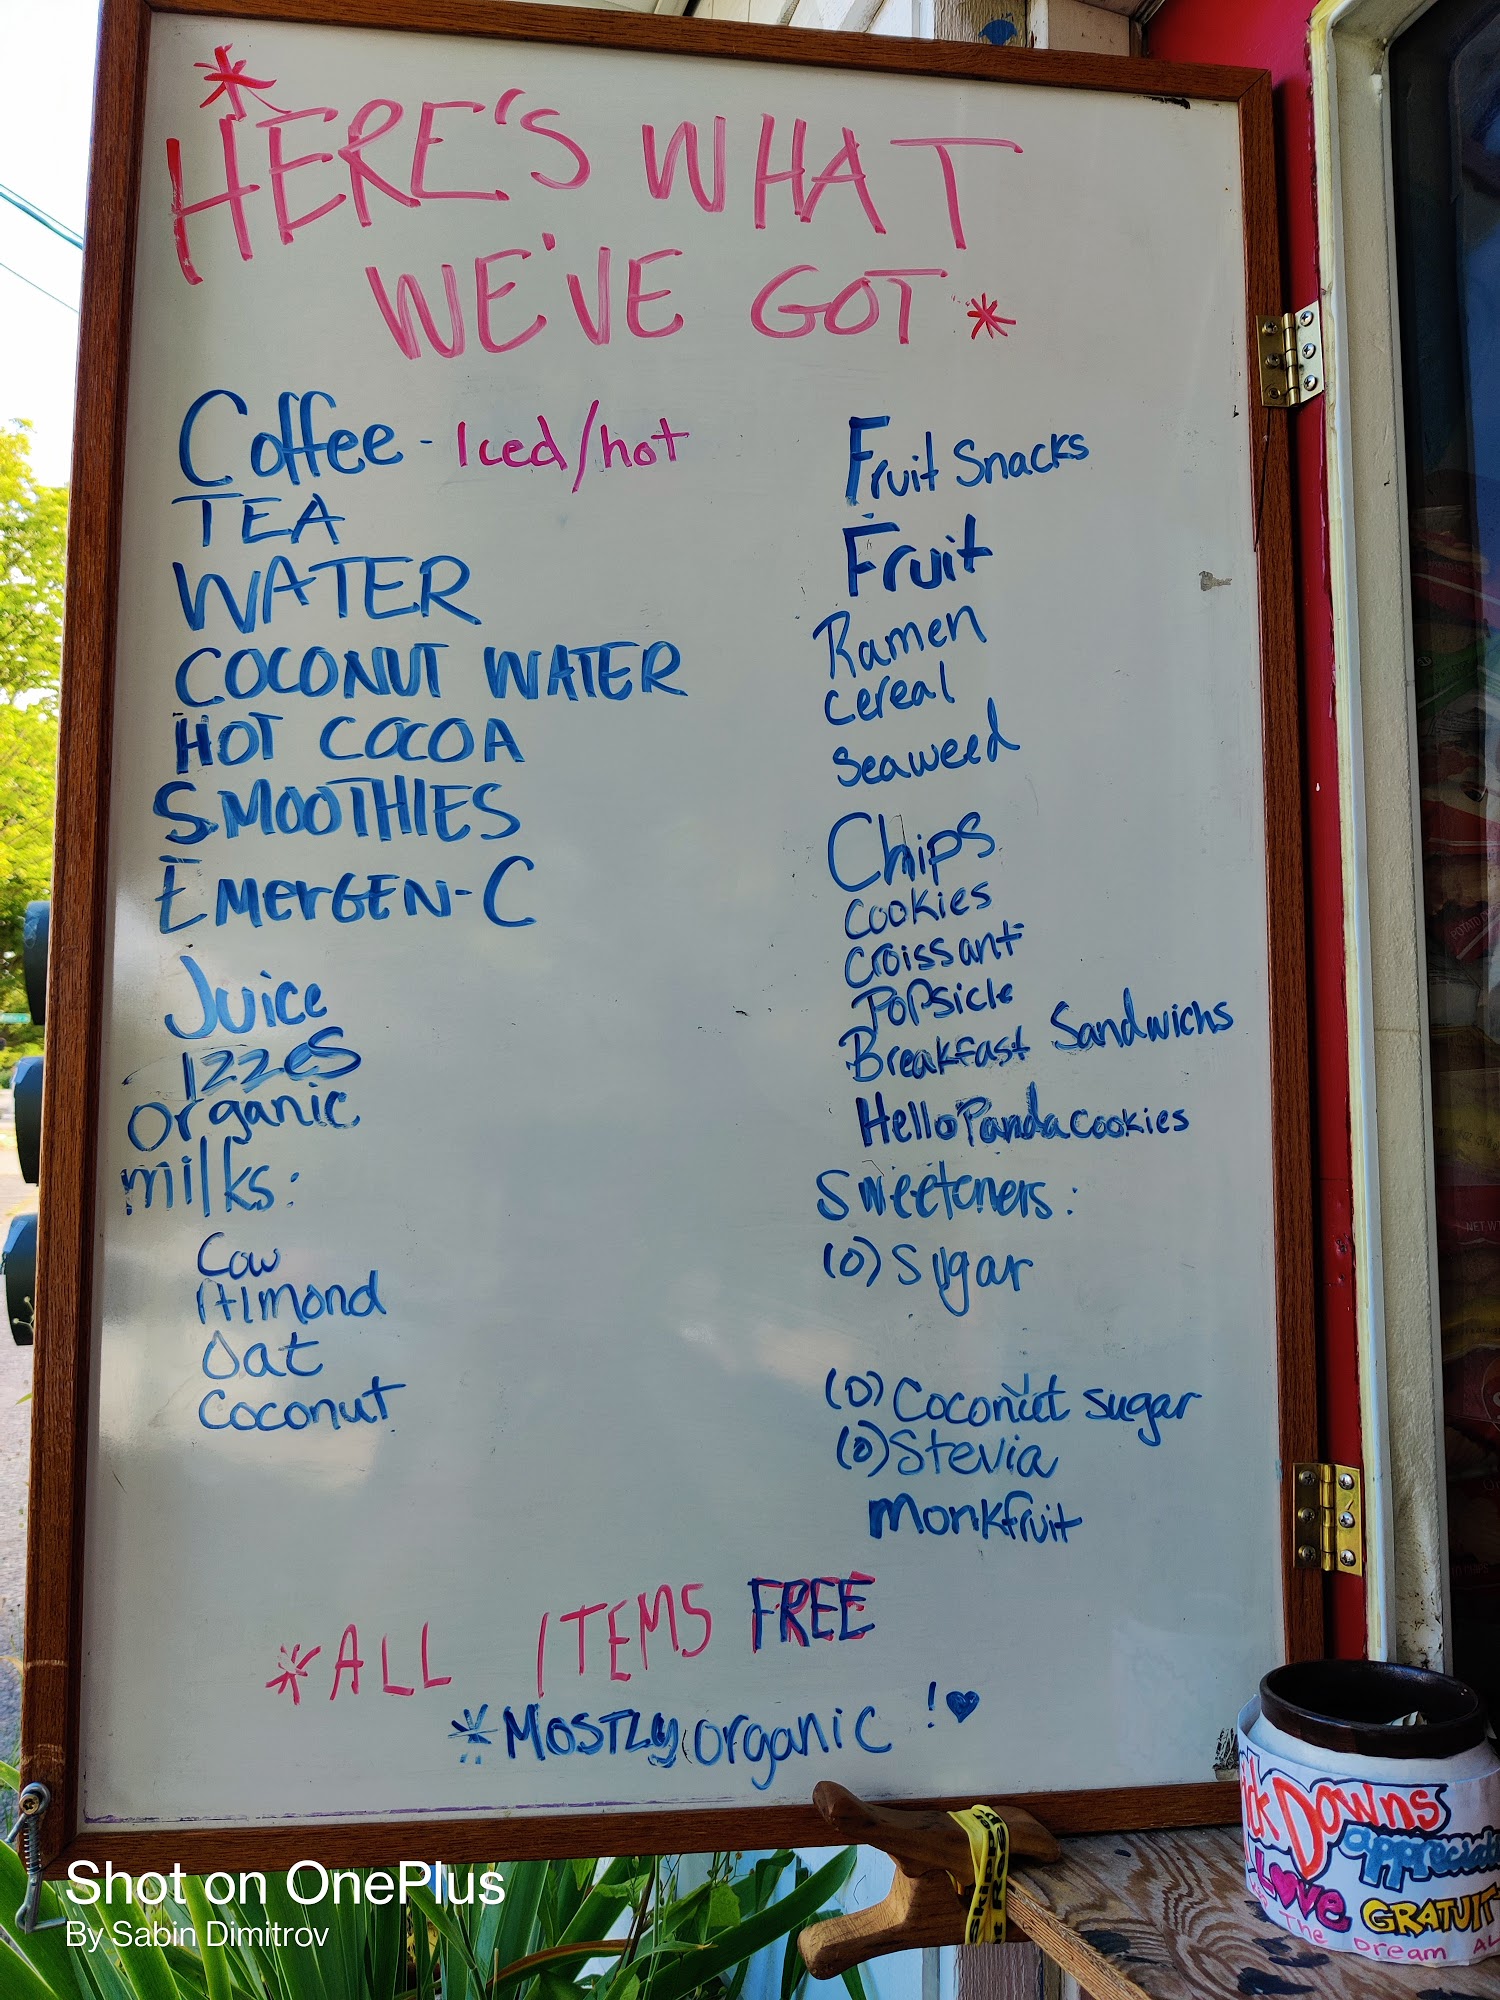 *HERE'S WHAT
WE'VE GOT*
Coffee - Iced/hot
TEA
WATER
COCONUT WATER
HOT COCOA
SMOOTHIES
EMERGEN-C
Juice
IZZES
Organic
milks:
Cow
Almond
Oat
Coconut
Fruit Snacks
Fruit
Ramen
cereal
seaweed
Chips
cookies
croissant
Popsicle
Breakfast Sandwichs
Hello Panda cookies
Sweeteners:
(O) Sugar
(O) Coconut sugar
(O) Stevia
monkfruit
*ALL ITEMS FREE
*MOSTLY organic !♥
Downs
Love
The Dream
Shot on OnePlus
By Sabin Dimitrov